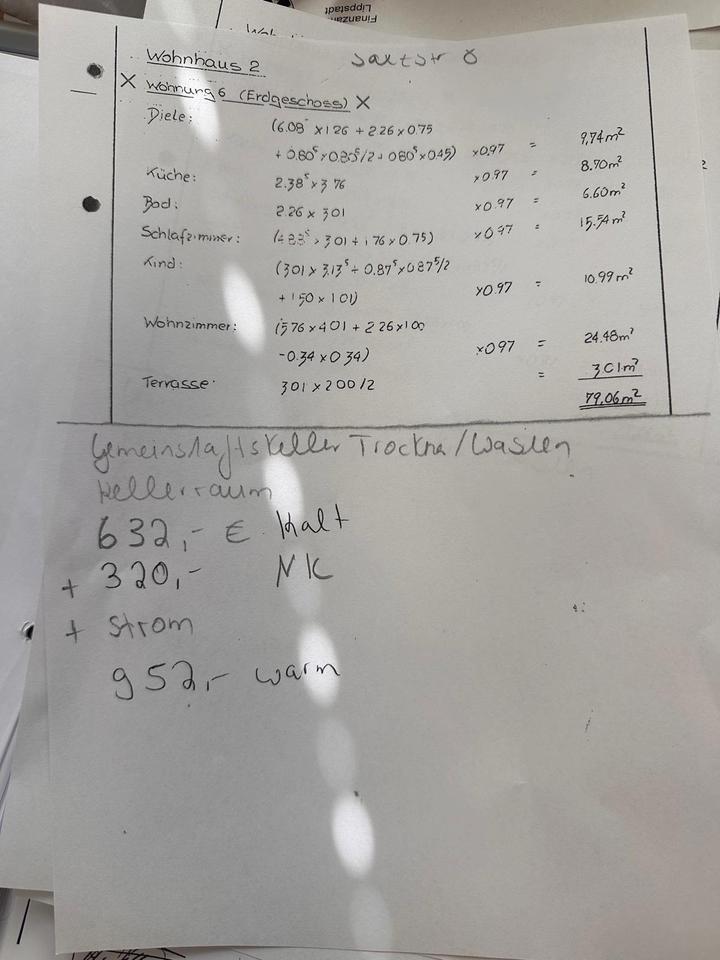 Finanzamt
Lippstadt
Wohnhaus 2
Wohnung 6 (Erdgeschoss)
Diele: (6.08⁵ x 1.26 + 2.26 x 0.75
+ 0.80⁵ x 0.80⁵/2 + 0.80⁵ x 0.45) x 0.97 = 9,74 m²
Küche: 2.38⁵ x 3.76 x 0.97 = 8.70 m²
Bad: 2.26 x 3.01 x 0.97 = 6.60 m²
Schlafzimmer: (4.88⁵ x 3.01 + 1.76 x 0.75) x 0.97 = 15.54 m²
Kind: (3.01 x 3.13⁵ + 0.87⁵ x 0.87⁵/2
+ 1.50 x 1.01) x 0.97 = 10.99 m²
Wohnzimmer: (5.76 x 4.01 + 2.26 x 1.00
- 0.34 x 0.34) x 0.97 = 24.48 m²
Terrasse: 3.01 x 2.00/2 = 3.01 m²
79,06 m²
Gemeinschaftskeller /
Kellerraum
632,- € Kalt
+ 320,- NK
+ Strom
952,- warm